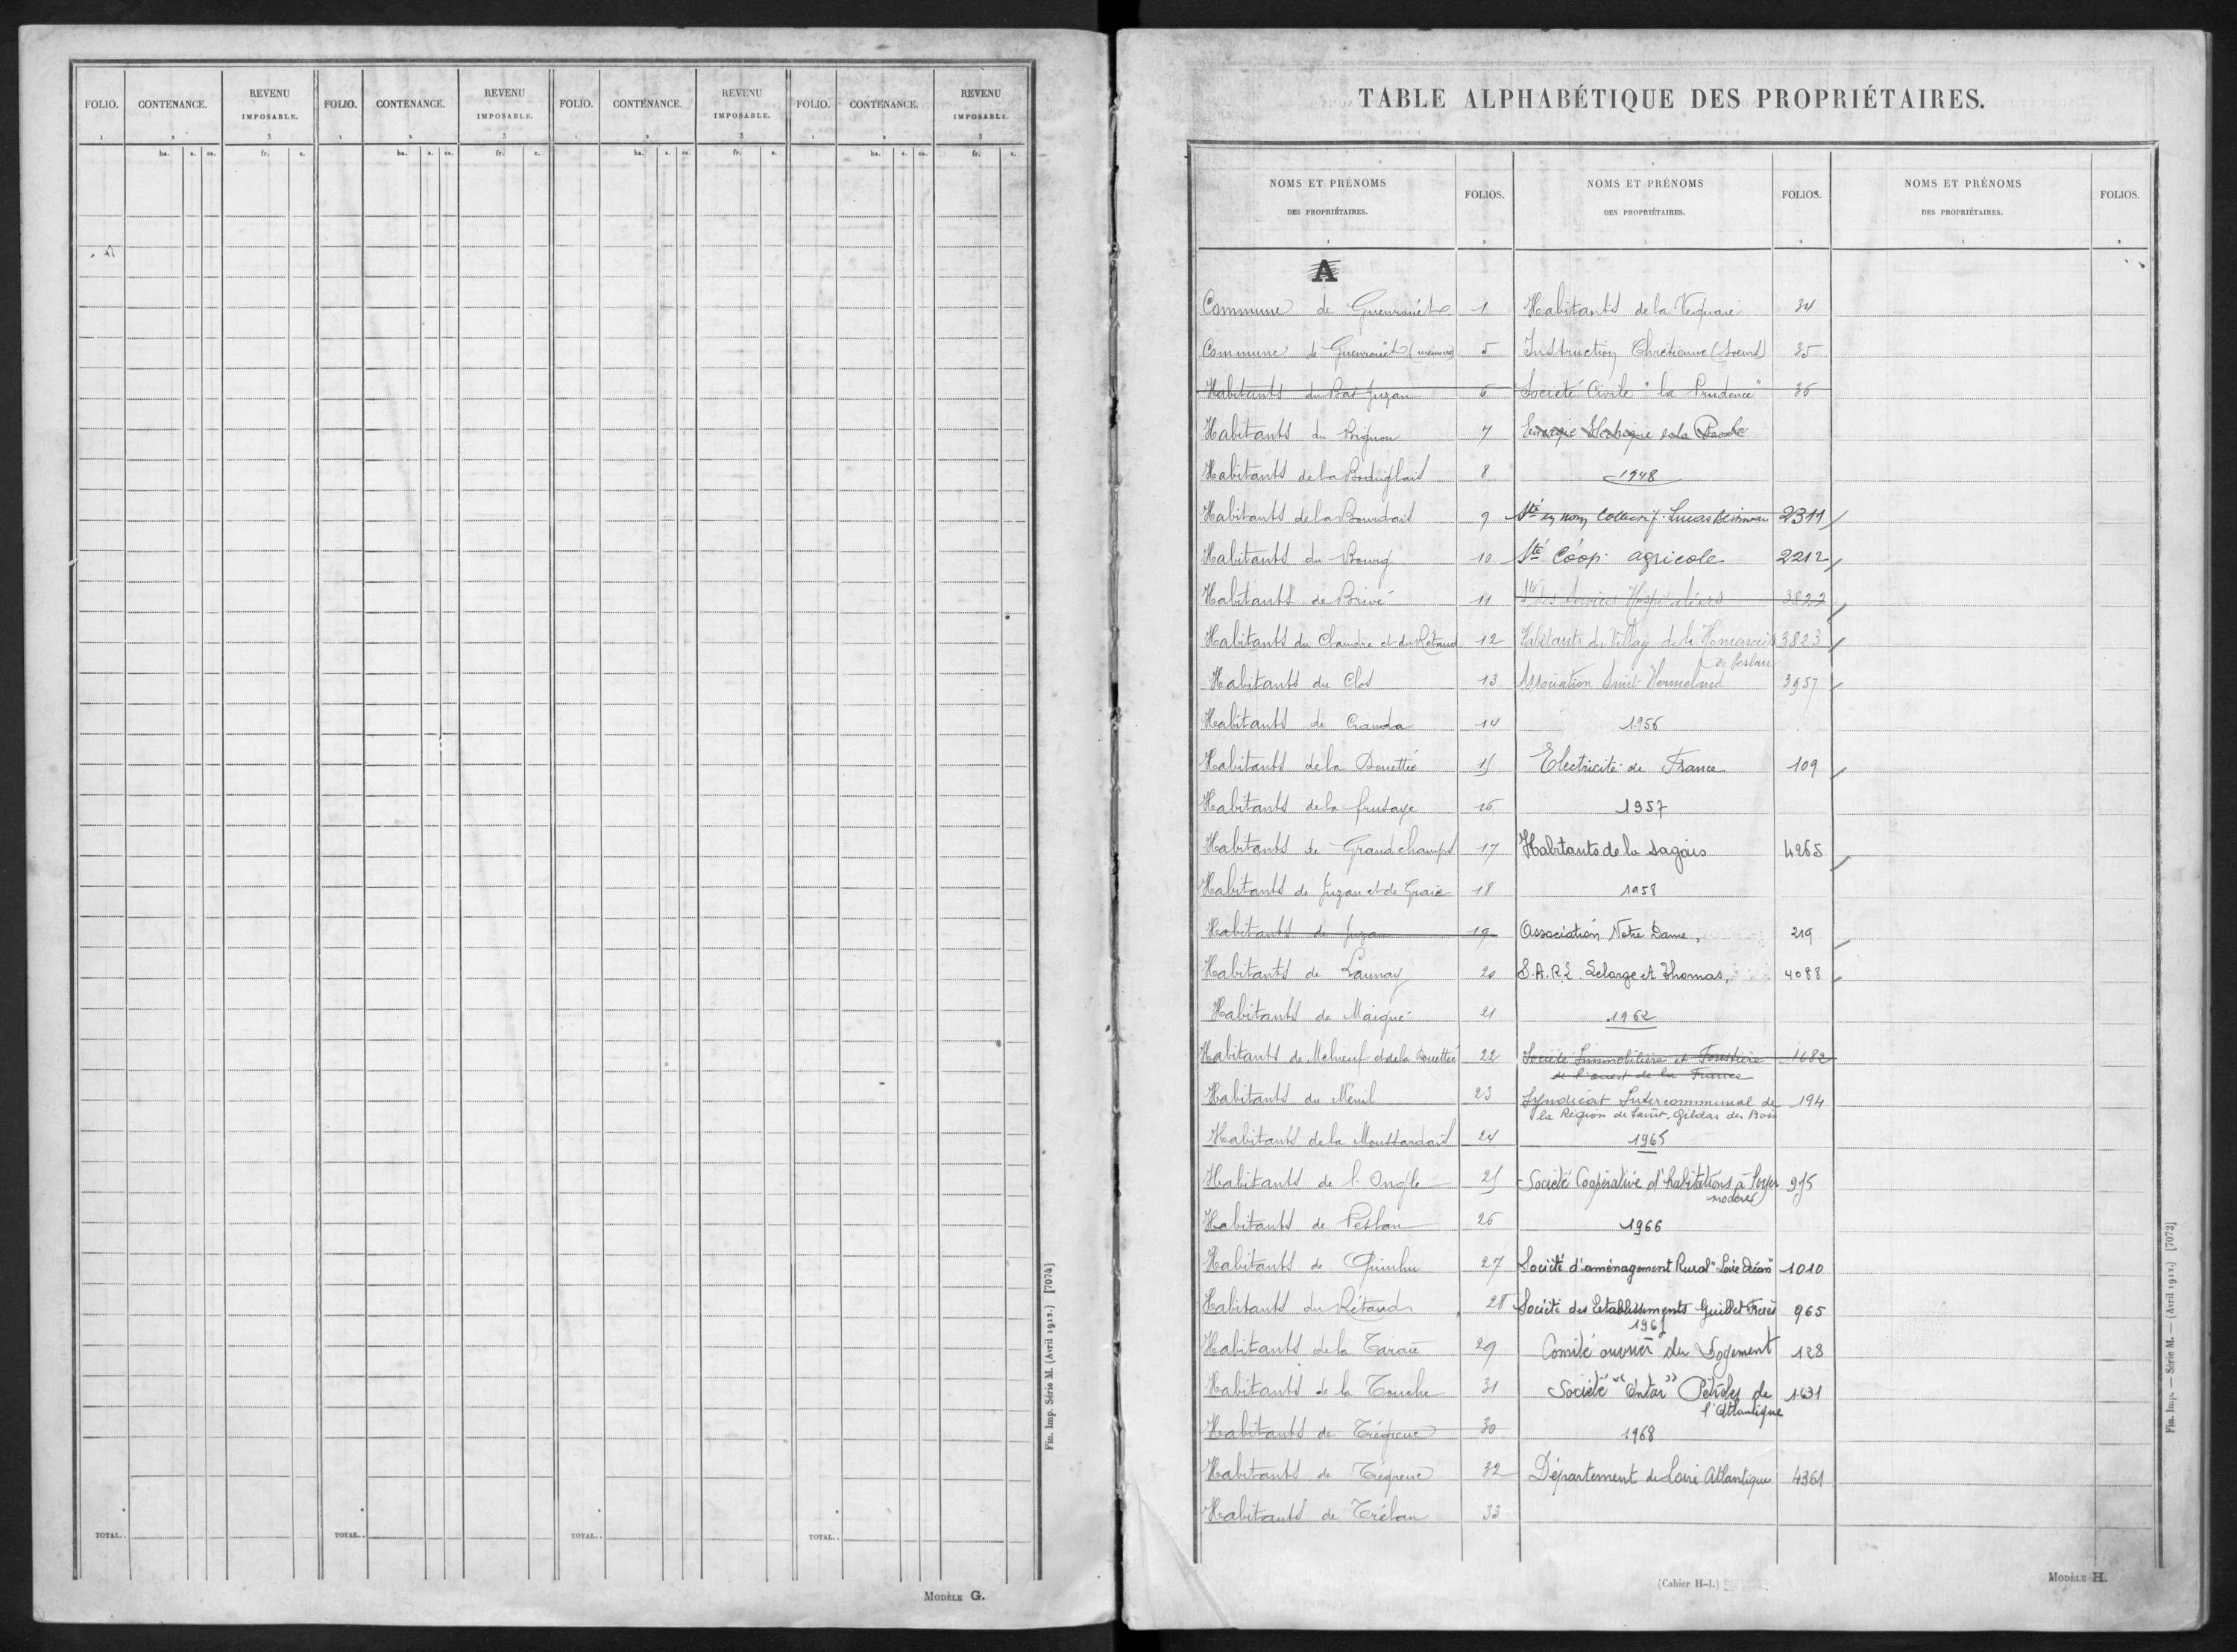 FOLIO. CONTENANCE. REVENU IMPOSABLE. FOLIO. CONTENANCE. REVENU IMPOSABLE. FOLIO. CONTENANCE. REVENU IMPOSABLE. FOLIO. CONTENANCE. REVENU IMPOSABLE.
1 2 3 1 2 3 1 2 3 1 2 3
ha. a. ca. fr. c. ha. a. ca. fr. c. ha. a. ca. fr. c. ha. a. ca. fr. c.
TOTAL.. TOTAL.. TOTAL.. TOTAL..
Fin. Imp. Série M. (Avril 1912.) [7074]
MODÈLE G.
TABLE ALPHABÉTIQUE DES PROPRIÉTAIRES.
NOMS ET PRÉNOMS DES PROPRIÉTAIRES. FOLIOS. NOMS ET PRÉNOMS DES PROPRIÉTAIRES. FOLIOS. NOMS ET PRÉNOMS DES PROPRIÉTAIRES. FOLIOS.
1 2 1 2 1 2
A
Commune de Guenrouët 1
Commune de Guenrouët 5
Habitants du Bas Juzan 6
Habitants du Brignon 7
Habitants de la 8
Habitants de la Bourdais 9
Habitants du Bourg 10
Habitants de Brivé 11
Habitants du et du Rétaud 12
Habitants du Clos 13
Habitants de Cranda 14
Habitants de la Douettée 15
Habitants de la 16
Habitants de Grandchamps 17
Habitants de Juzan et de 18
Habitants de Juzan 19
Habitants de Launay 20
Habitants de Maigué 21
Habitants de Melneuf et de la Douettée 22
Habitants du Ménil 23
Habitants de la Moustardais 24
Habitants de l'Ongle 25
Habitants de Peslan 26
Habitants de Quinhu 27
Habitants du Rétaud 28
Habitants de la 29
Habitants de la Touche 31
Habitants de 30
Habitants de 32
Habitants de Trélan 33
Habitants de la 34
Instruction Chrétienne (Soeurs) 35
Société Civile "la Prudence" 36
1948
Sté en nom Collectif Lucas 2311
Sté Coop. agricole 2212
Sté des Services Hospitaliers 3822
Habitants du Village de la 3823
et Peslan
Association Saint Hermeland 3957
1956
Electricité de France 109
1957
Habitants de la Sagais 4265
1958
Association Notre Dame, 219
S.A.R.L Delarge et Thomas, 4088
1962
Société Immobilière et Forestière 1682
de l'ouest de la France
Syndicat Intercommunal de 194
la Région de Saint-Gildas des Bois
1965
Société Coopérative d'habitations à loyer 915
modéré
1966
Société d'aménagement Rural "Loire Océan" 1010
Société des Etablissements Guillet Frères 965
Comité ouvrier du Logement 128
Société "Antar" Pétroles de 1631
l'Atlantique
1968
Département de Loire Atlantique 4361
(Cahier H-1.)
MODÈLE H.
Fin. Imp. — Série M. — (Avril 1912.) [7073]